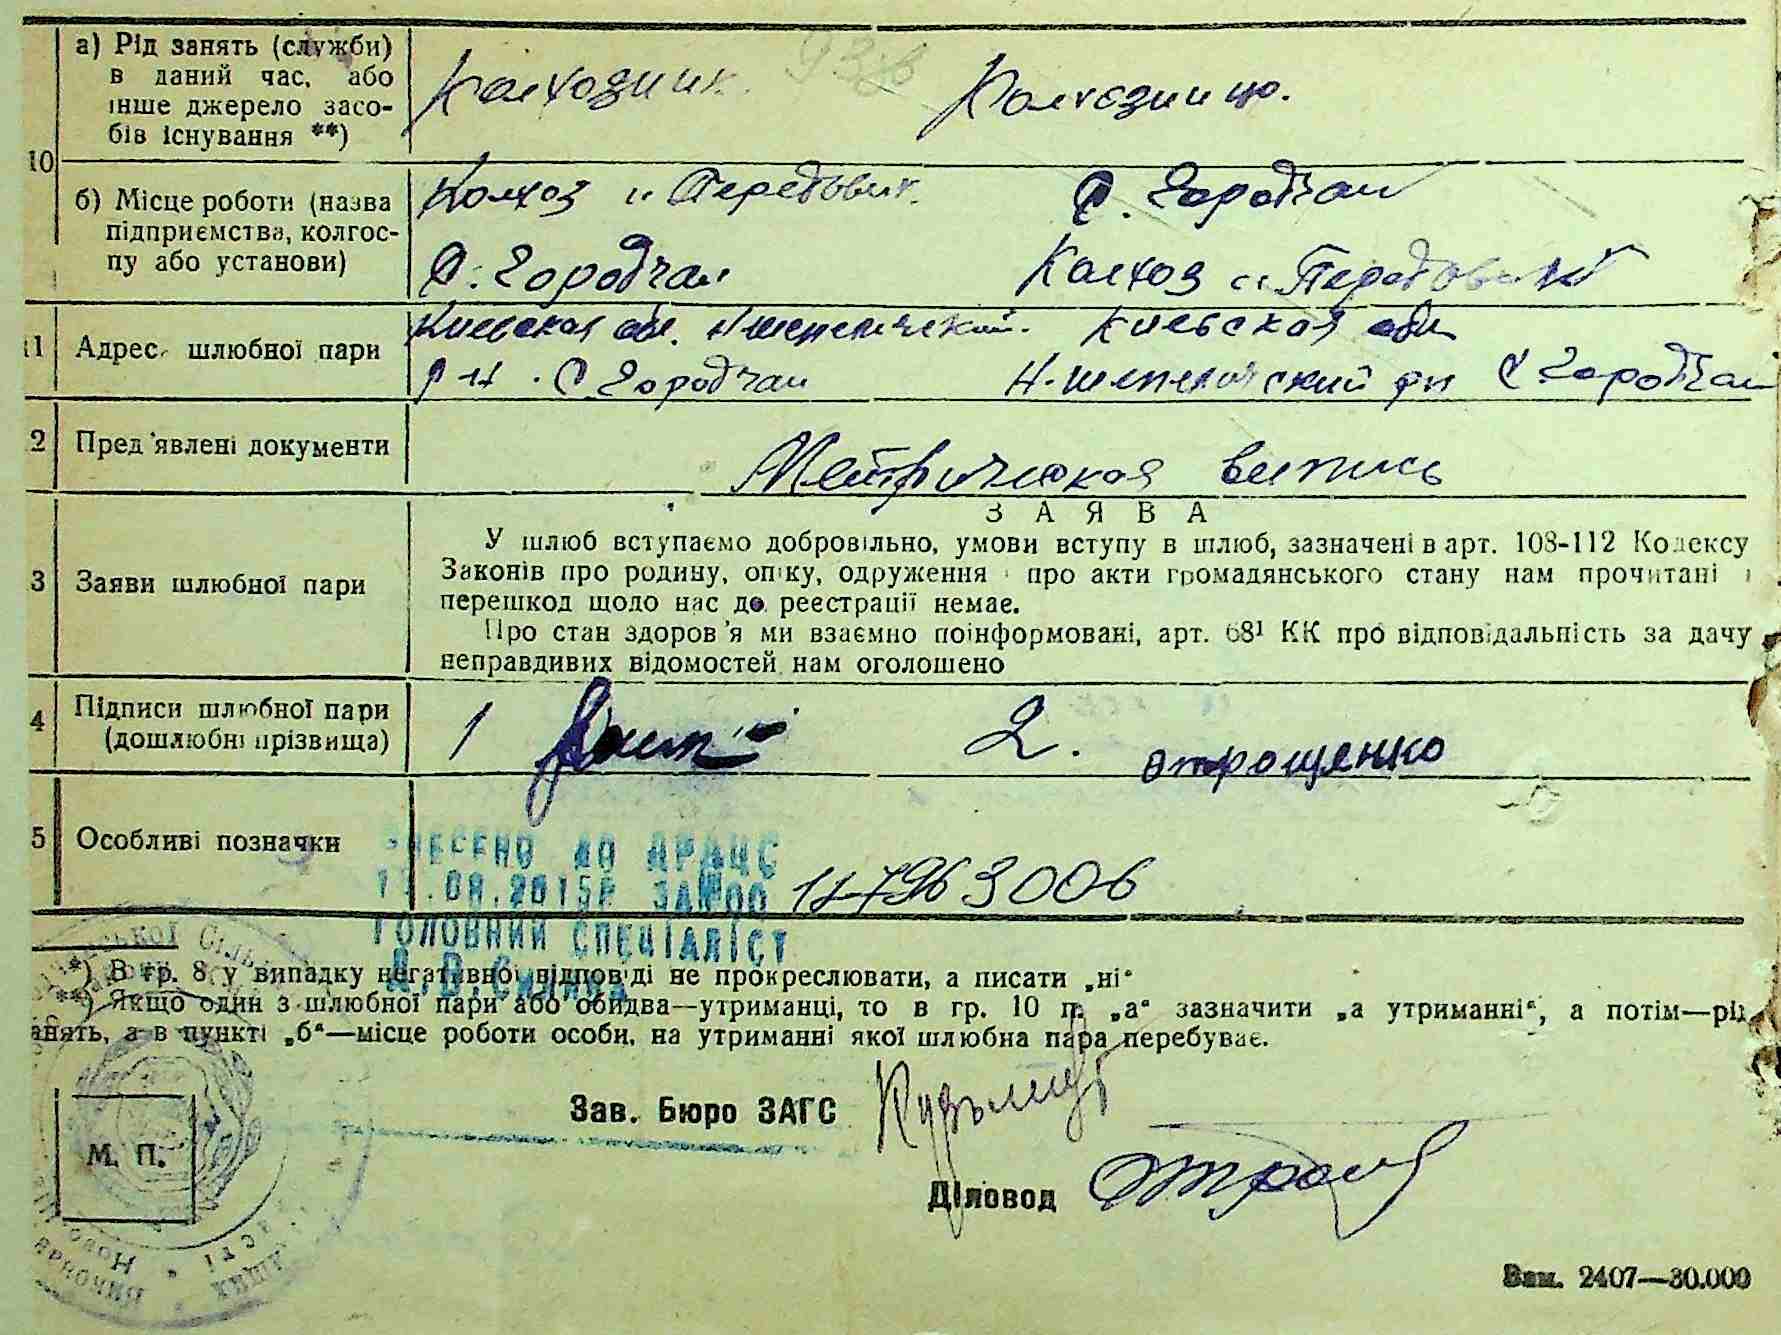 а) Рід занять (служби)
в даний час, або
інше джерело засо-
бів існування **)
Колхозник. Колхозницю.
10
б) Місце роботи (назва
підприємства, колгос-
пу або установи)
Колхоз "Передовик. С. Городчан
С. Городчан Колхоз "Передовик
11 Адрес шлюбної пари
Киевская обл. Н шепеличский. Киевская обл
р-н. С Городчан Н-шепеличский рн С Городчан
2 Пред'явлені документи
Метрическая випись
3 Заяви шлюбної пари
ЗАЯВА
У шлюб вступаємо добровільно, умови вступу в шлюб, зазначені в арт. 108-112 Кодексу
Законів про родину, опіку, одруження і про акти громадянського стану нам прочитані і
перешкод щодо нас до реєстрації немає.
Про стан здоров'я ми взаємно поінформовані, арт. 68¹ КК про відповідальність за дачу
неправдивих відомостей нам оголошено
4 Підписи шлюбної пари
(дошлюбні прізвища)
1 2. Отрощенко
5 Особливі позначки
ВНЕСЕНО ДО ДРАЦС
.08.2015Р ЗА №00 117963006
ГОЛОВНИЙ СПЕЦІАЛІСТ
*) В гр. 8 у випадку негативної відповіді не прокреслювати, а писати „ні“
**) Якщо один з шлюбної пари або обидва—утриманці, то в гр. 10 п. „а“ зазначити „а утриманні“, а потім—рід
анять, а в пункті „б“—місце роботи особи, на утриманні якої шлюбна пара перебуває.
Зав. Бюро ЗАГС
М. П.
Діловод
Зам. 2407—30.000